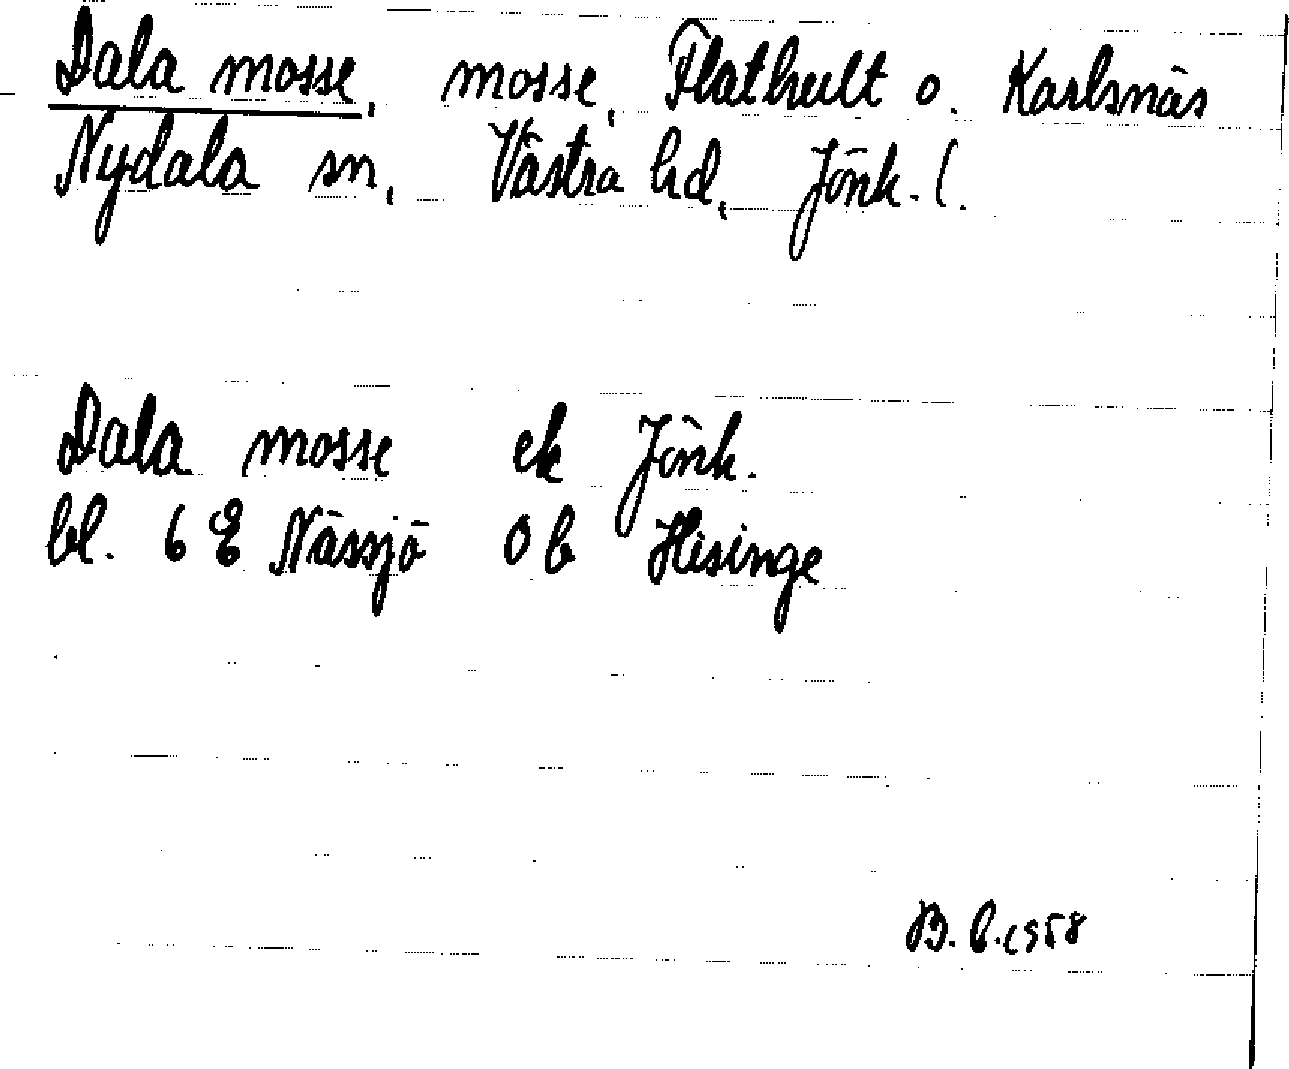 Dala mosse, mosse, Flathult o. Karlsnäs
Nydala sn, Västra hd, Jönk. l.
Dala mosse ek Jönk.
bl. 6 E Nässjö 0 b Hisinge
B. L. 1958